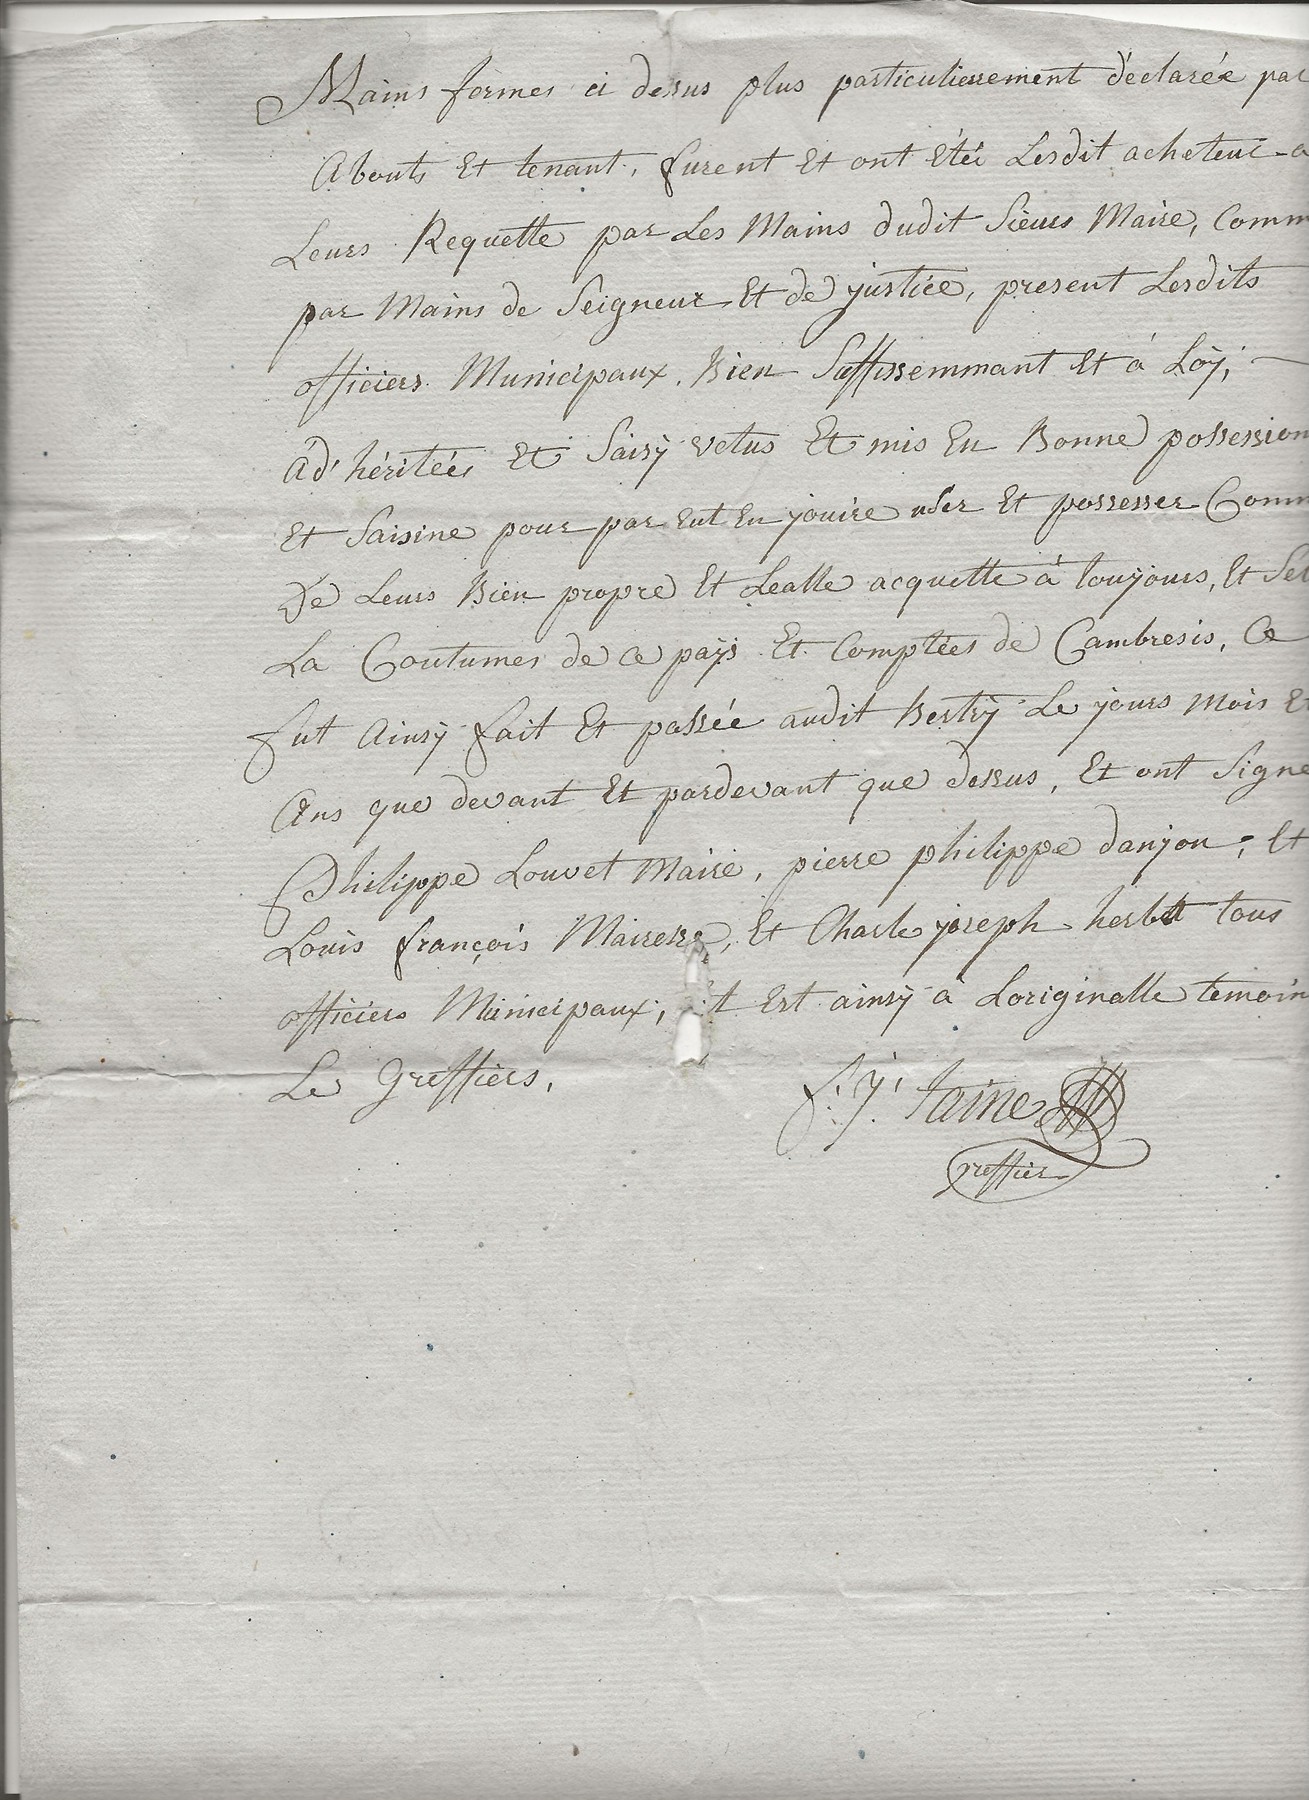 Mains fermes ci dessus plus particulierement déclarée par
Abouts Et tenant, furent Et ont étéé Lesdit acheteur a
Leurs Requette par Les Mains dudit Sieurs Maire, Comm
par Mains de Seigneur Et de justice, present Lesdits
officiers Municipaux, Bien Suffissemmant Et á Loÿ,
Ad'héritées Et Saisÿ vetus Et mis En Bonne possession
Et Saisine pour par Eut En jouire user Et possesser Comm
De Leurs Bien propre Et Lealle acquette á toujours, Et Sel
La Coutumes de ce païs Et Comptées de Cambresis, Ce
fut Ainsÿ fait Et passée audit Bertrÿ Le jours Mois Et
Ans que devant Et pardevant que dessus, Et ont Signe
Philippe Louvet Maire, pierre philippe danjou, Et
Louis françois Mairesse, Et Charle joseph herbet tous
officiers Municipaux, Et Est ainsÿ á Loriginalle temoin
Le Greffiers,
f: j: taine
greffier